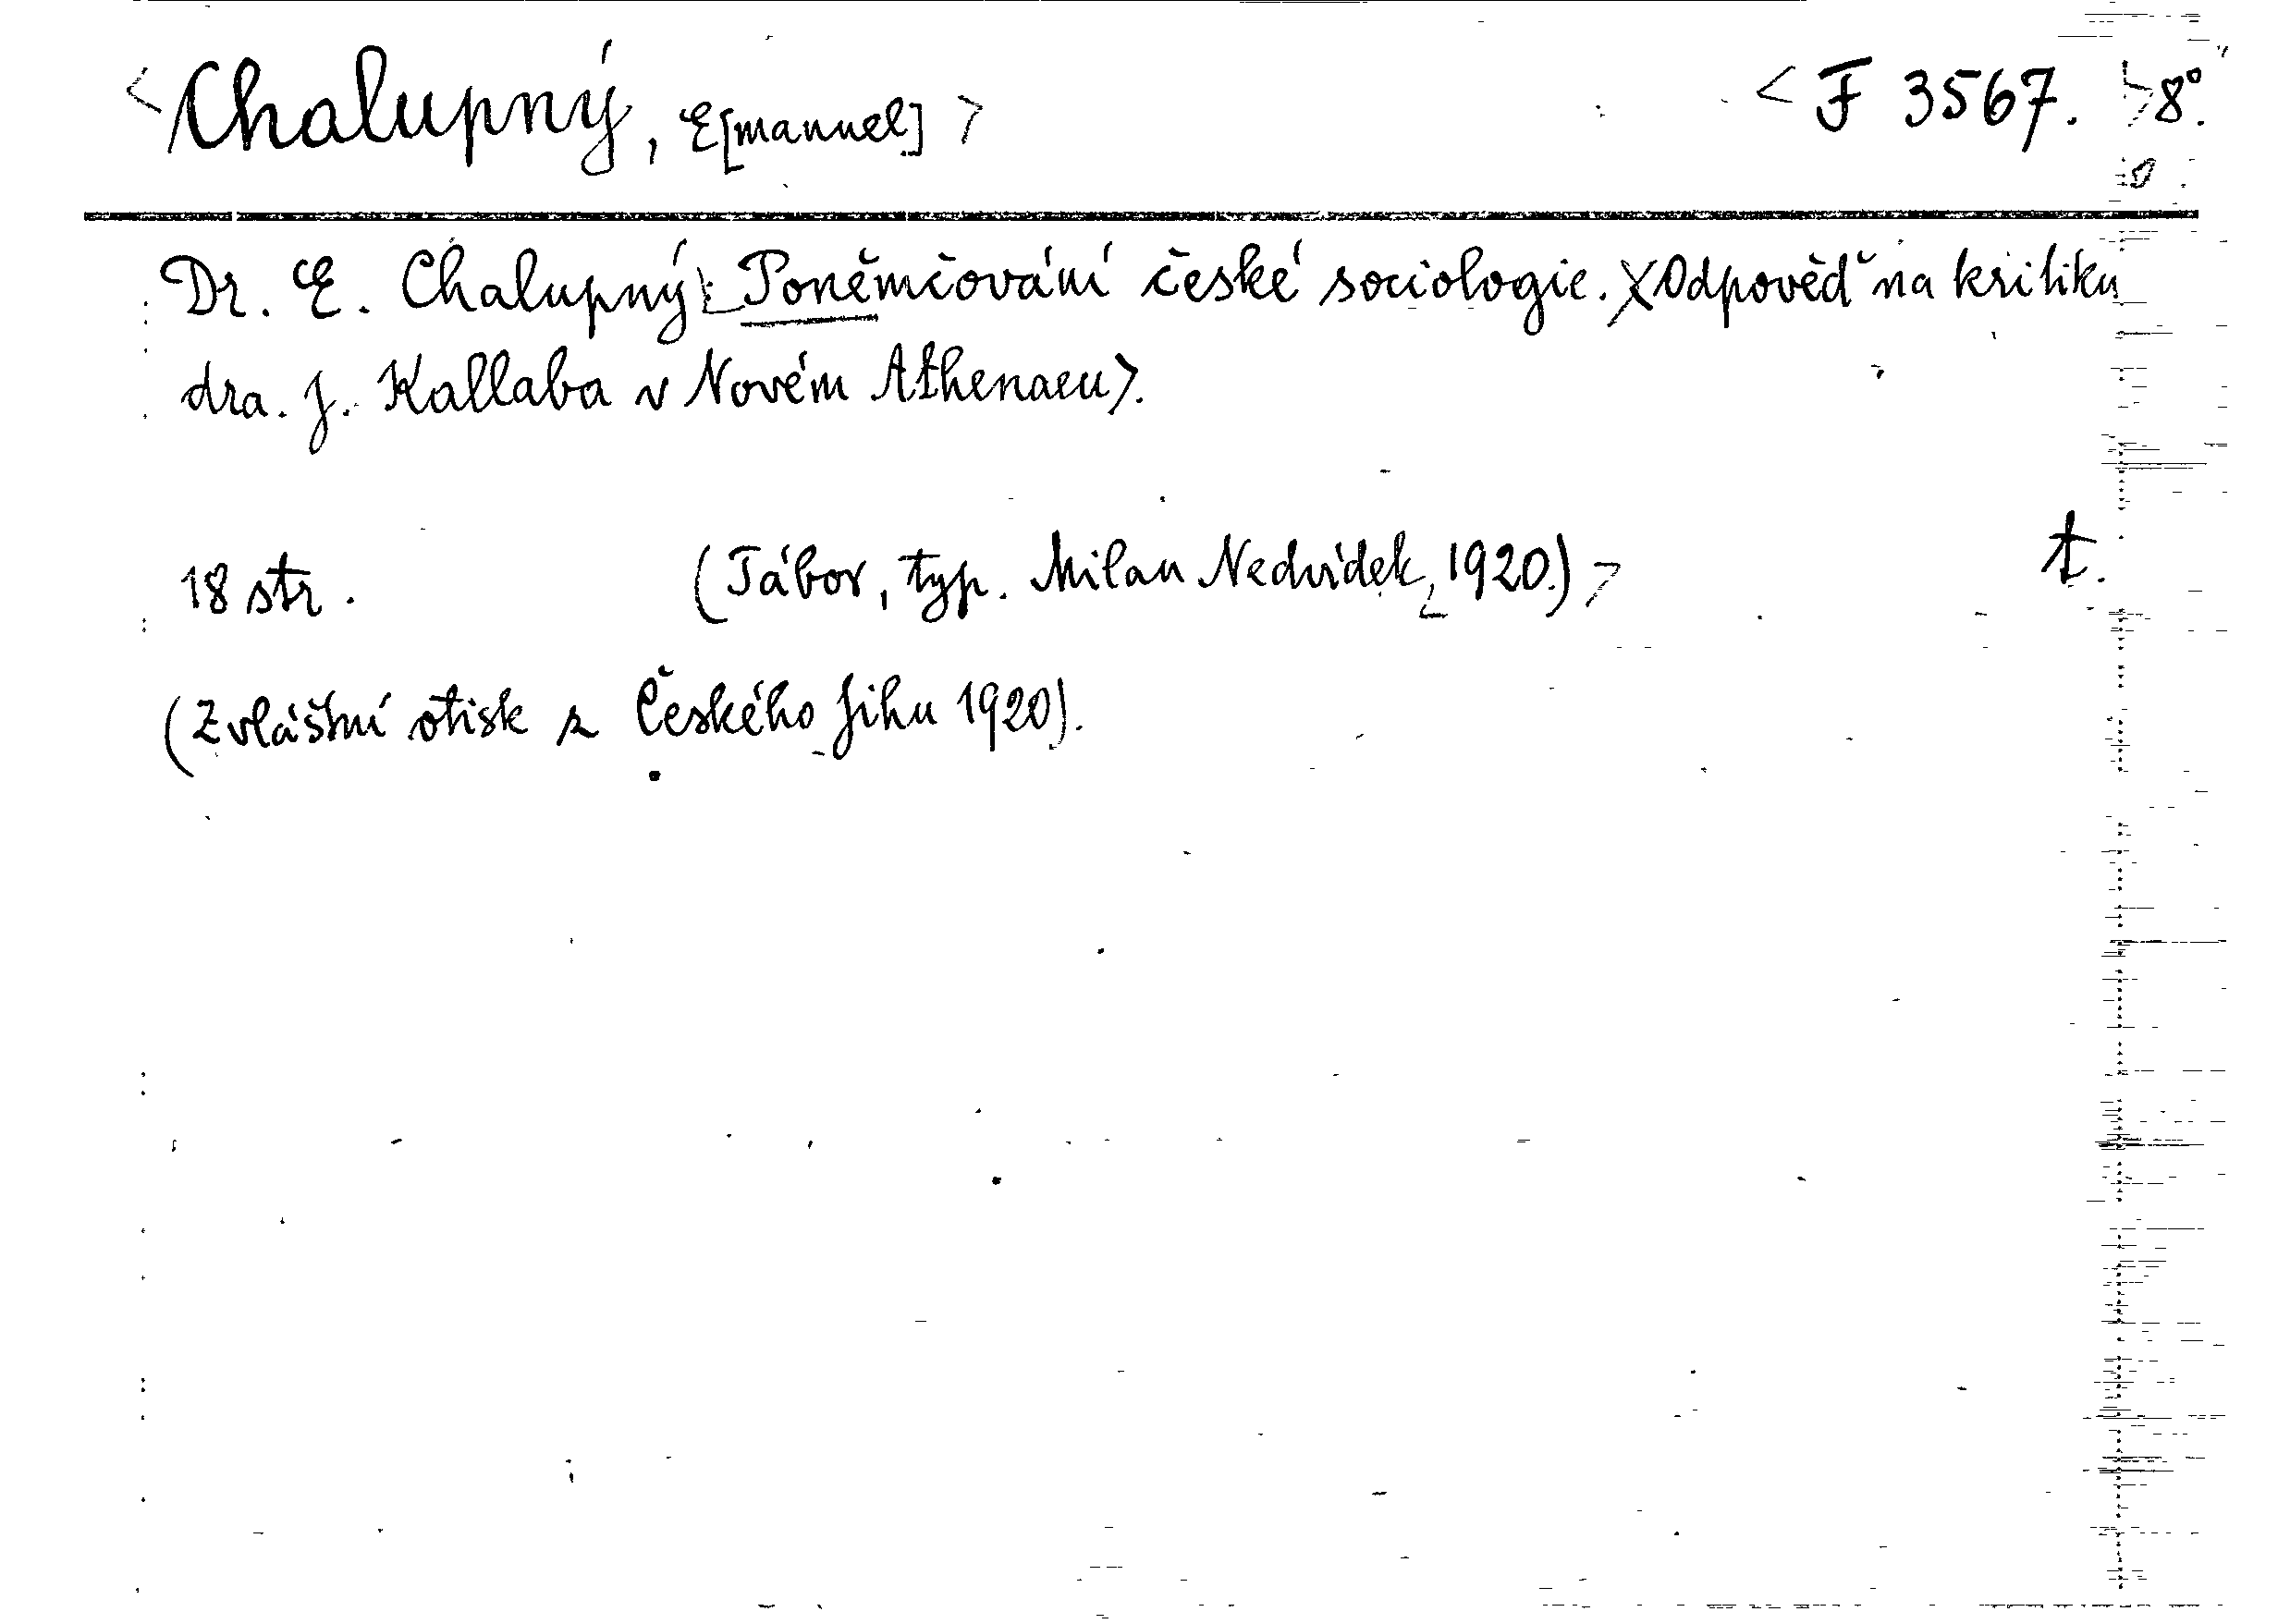 <Chalupný, E[manuel]> <F 3567. >8°.
Dr. E. Chalupný: Poněmčování české sociologie. X Odpověď na kritiku
dra. J. Kallaba v Novém Athenaeu>.
18 str. (Tábor, typ. Milan Nedvídek, 1920.)> t.
(Zvláštní otisk z Českého Jihu 1920).